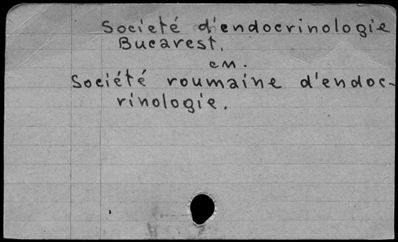 Societé d'endocrinologie
Bucarest.
en.
Société roumaine d'endoc-
rinologie.